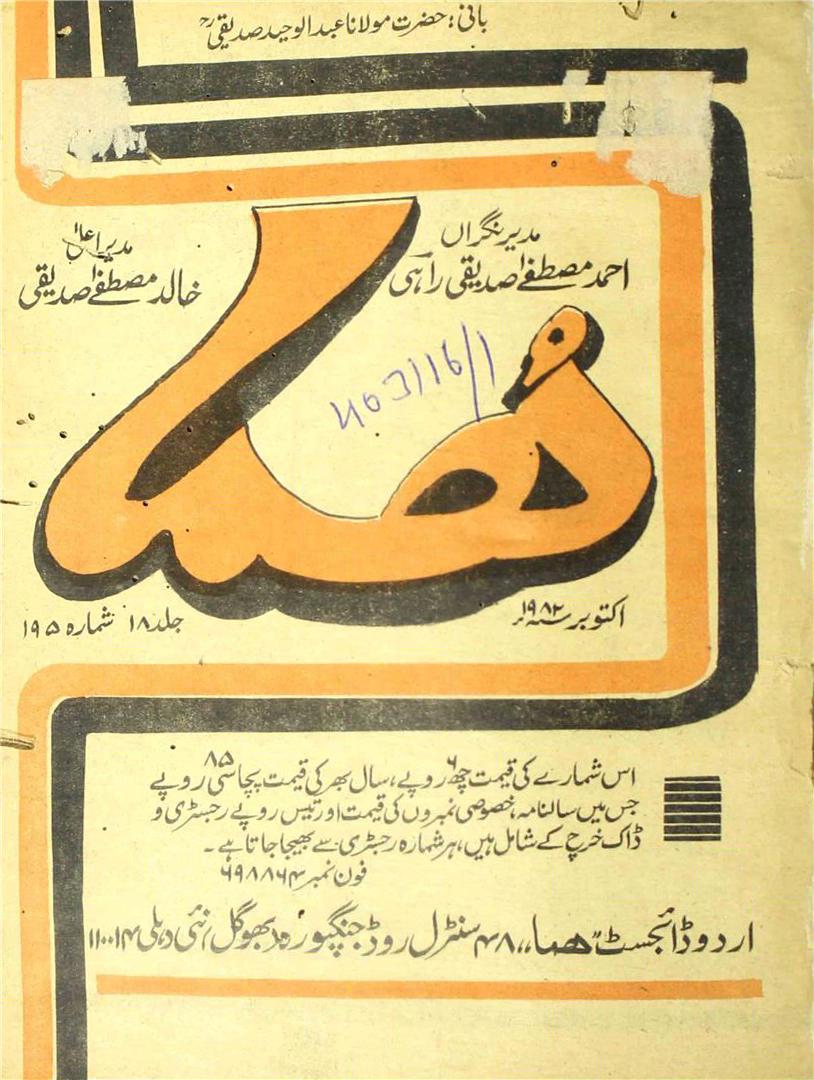 بانی: حضرت مولانا عبدالوحید صدیقیؒ
مدیر نگراں
احمد مصطفےٰ صدیقی راہی
مدیر اعلیٰ
خالد مصطفےٰ صدیقی
ھما
اکتوبر ۱۹۸۲ء
جلد ۱۸ شمارہ ۱۹۵
اس شمارے کی قیمت چھ ۶ روپے، سال بھر کی قیمت پچاسی ۸۵ روپے
جس میں سالنامہ، خصوصی نمبروں کی قیمت اور تیس روپے رجسٹری و
ڈاک خرچ کے شامل ہیں، ہر شمارہ رجسٹری سے بھیجا جاتا ہے۔
فون نمبر ۶۹۸۸۶۴
اردو ڈائجسٹ "ھما،، ۴۸ سنٹرل روڈ جنگپورہ، بھوگل، نئی دہلی ۱۱۰۰۱۴